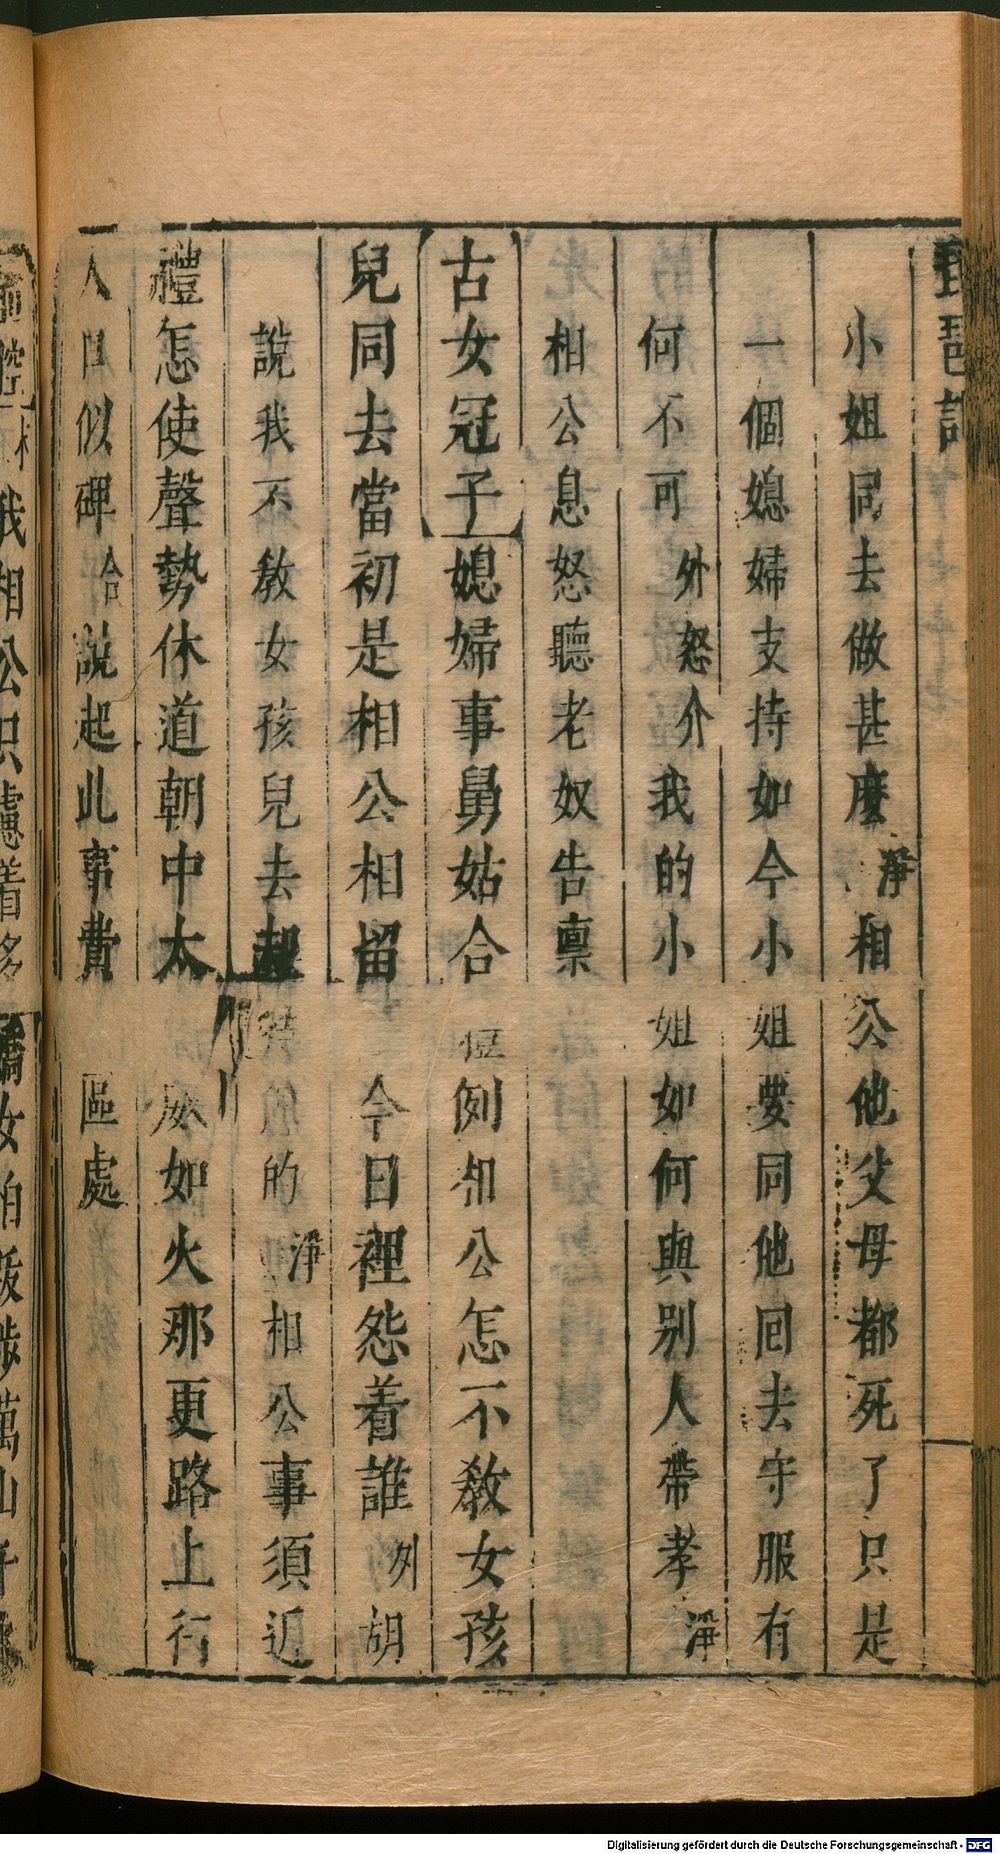 琵琶記
小姐同去做甚麼淨相公他父母都死了只是
一個媳婦支持如今小姐要同他回去守服有
何不可外怒介我的小姐如何與别人帶孝淨
相公息怒聽老奴告稟
古女冠子媳婦事舅姑合例相公怎不教女孩
兒同去當初是相公相留今日裡怨着誰外胡
說我不教女孩兒去的淨相公事須近
禮怎使聲勢休道朝中太師威如火那更路上行
人口似碑合說起此事費區處
我相公只慮着多嬌女怕跋涉萬山千水